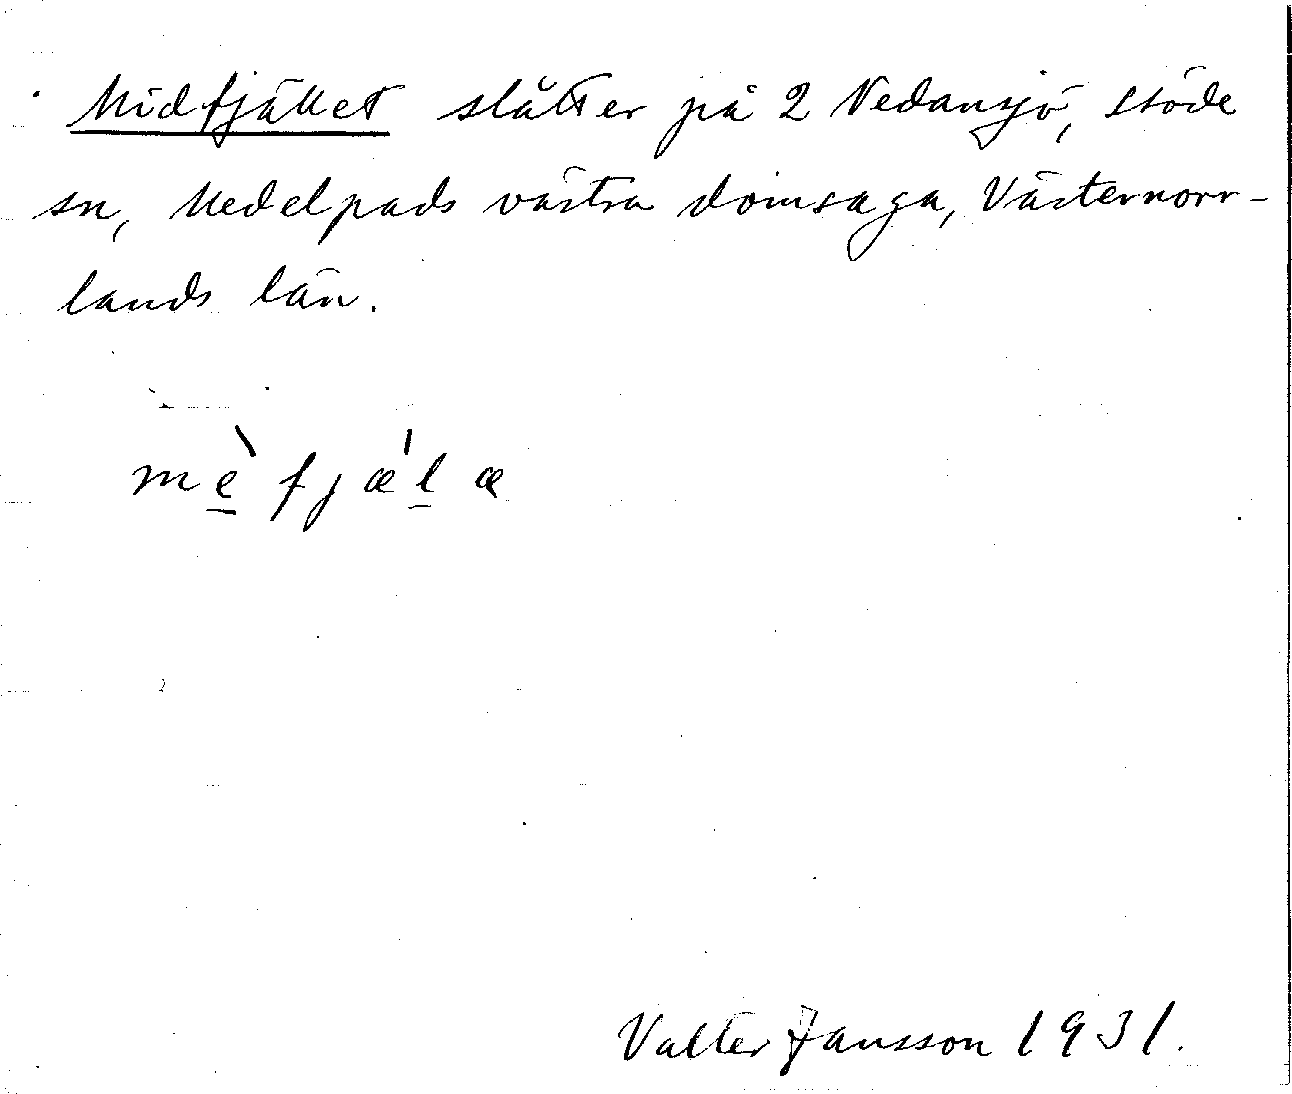 Midfjället slåtter på 2 Nedansjö, Stöde
sn, Medelpads västra domsaga, Västernorr-
lands län.
mè̱ fjæ'ḻæ
Valter Jansson 1931.